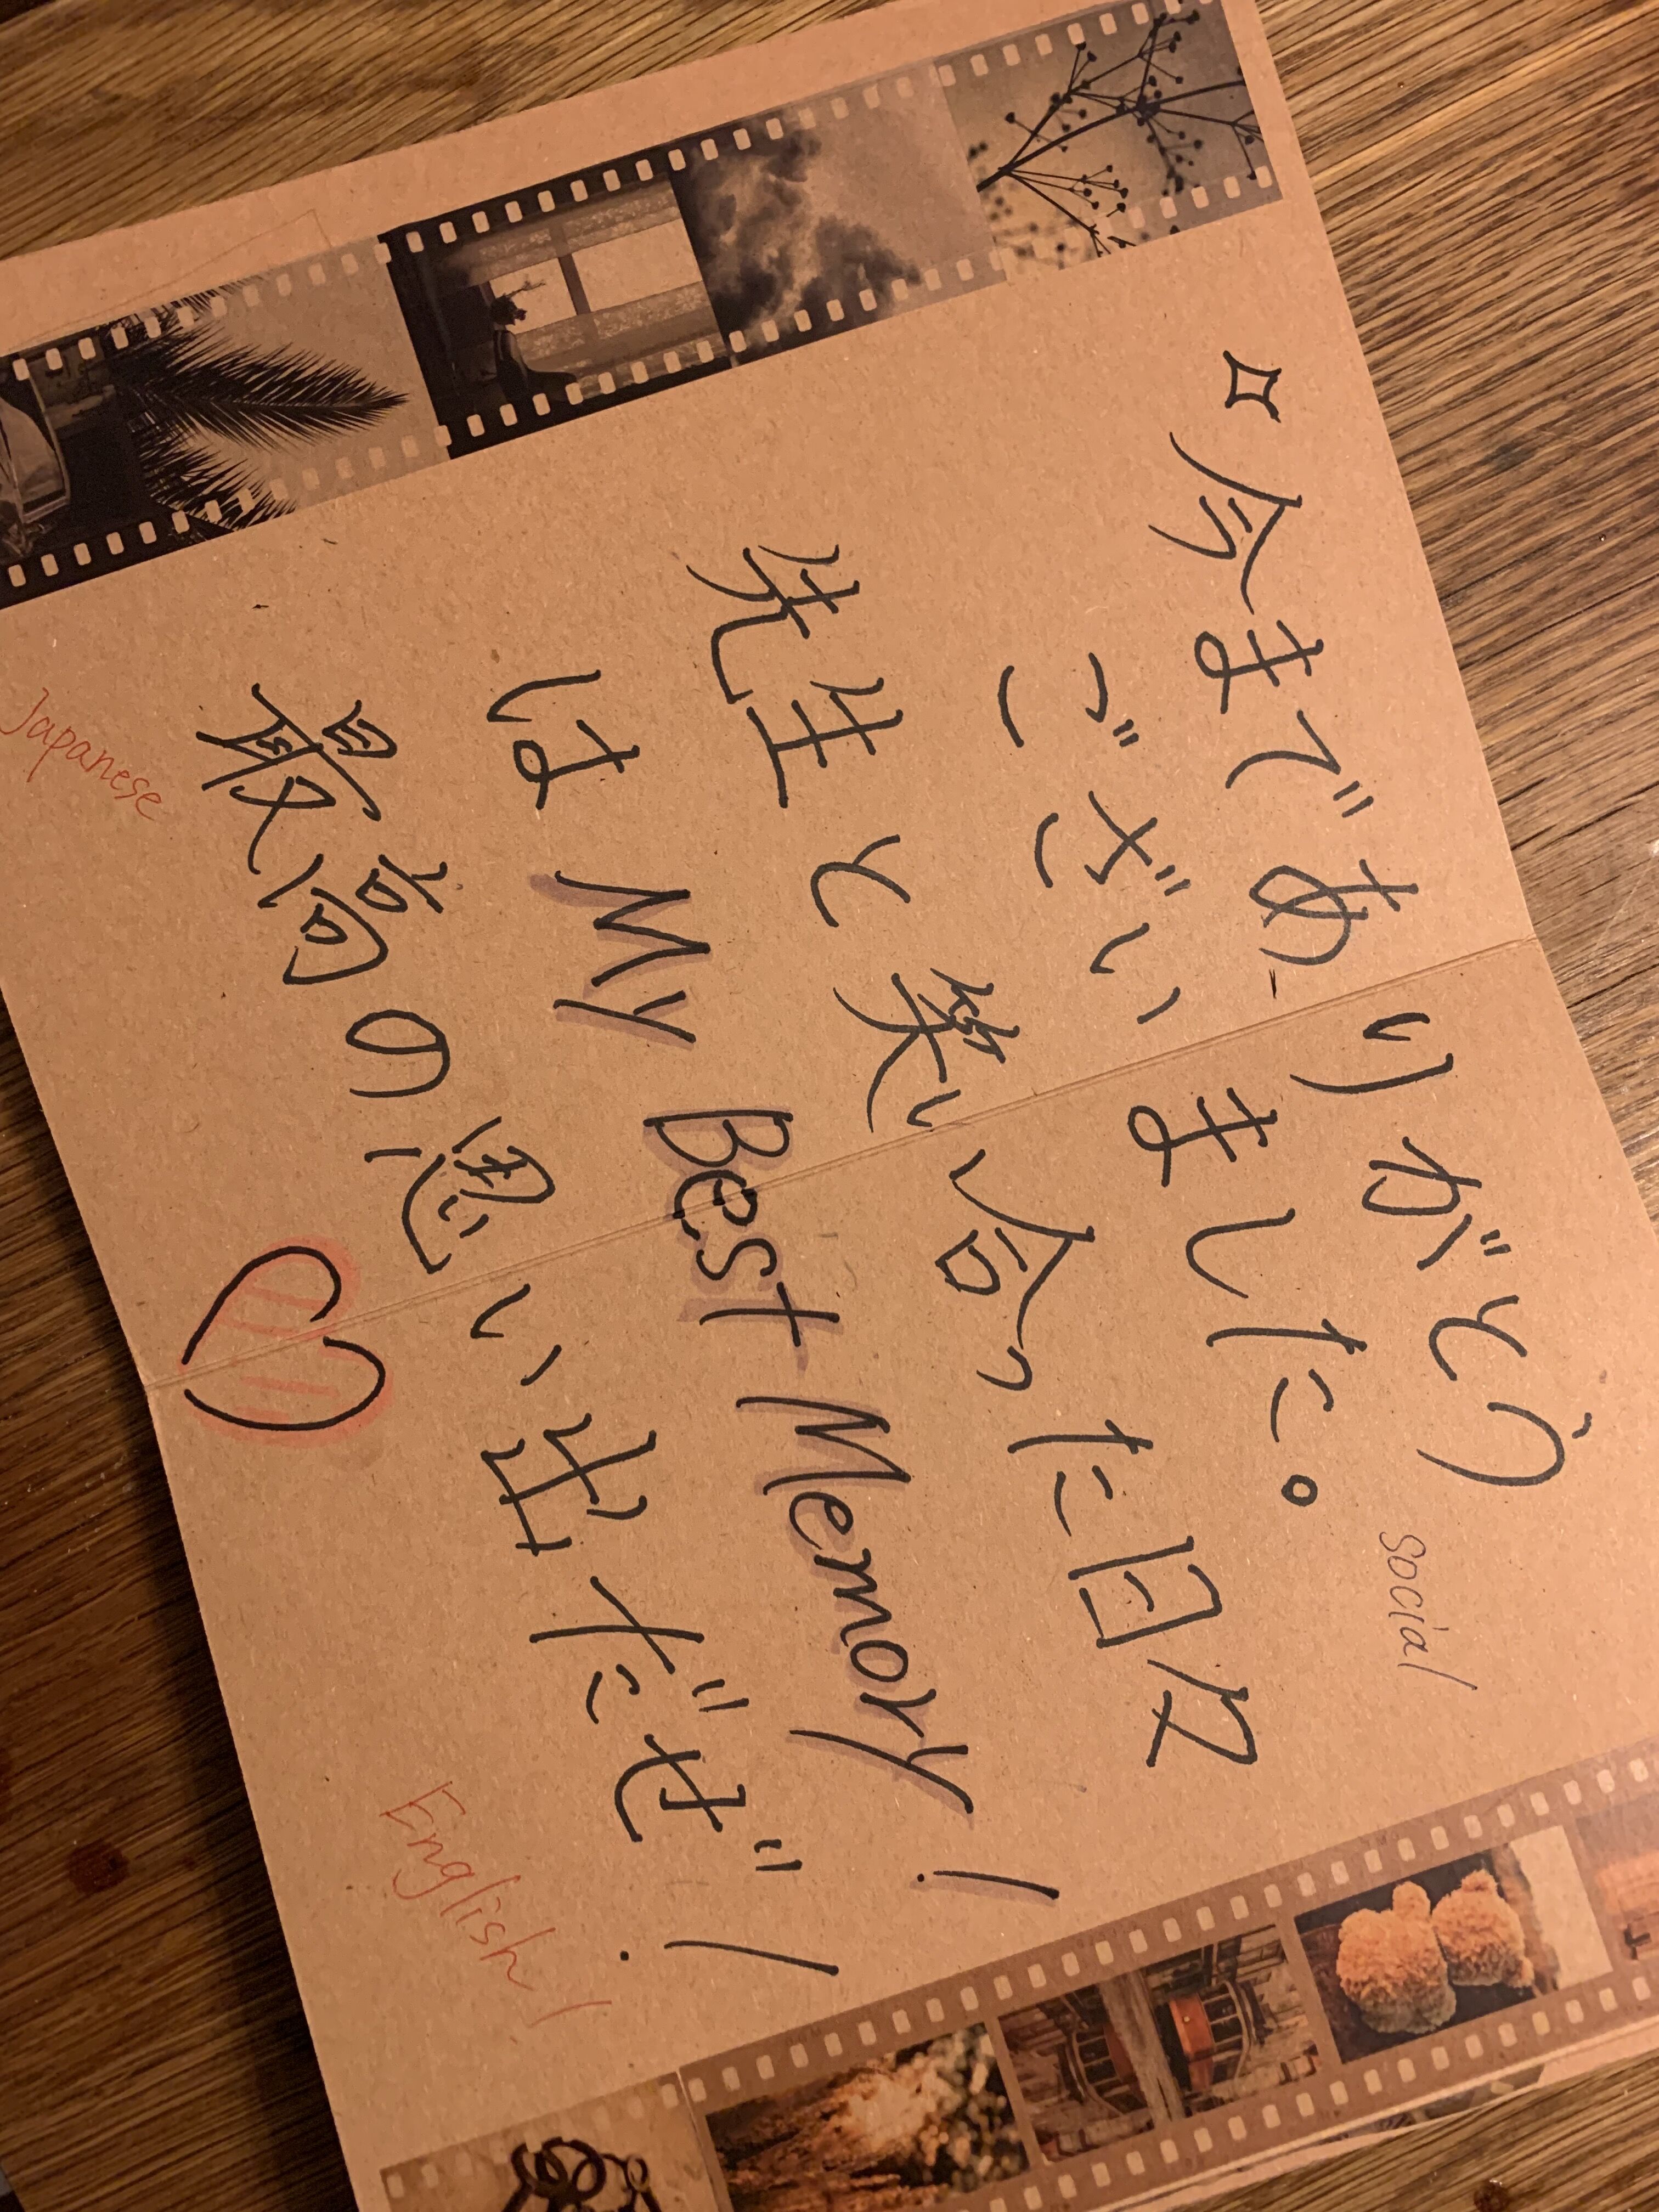 今までありがとう
ございました。
social
先生と笑い合った日々
は My Best Memory!
最高の思い出だぜ!
Japanese
English!